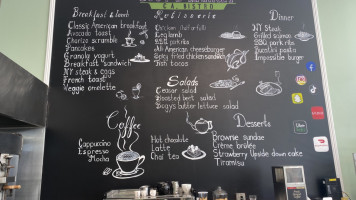 CA. BISTRO
Breakfast & lunch
Classic American breakfast
Avocado toast
Chorizo scramble
Pancakes
Granola yogurt
Breakfast sandwich
NY steak & eggs
French toast
Veggie omelette
Rotisserie
Chicken
Leg lamb
BBQ ribs
All American cheeseburger
Spicy fried chicken sandwich
Fish tacos
Salads
Caesar salad
Roasted beet salad
Butter lettuce salad
Dinner
NY Stout
Grilled salmon
BBQ pork ribs
Bucatti pasta
Impossible burger
Coffee
Cappuccino
Espresso
Mocha
Hot chocolate
Latte
Chai tea
Desserts
Brownie sundae
Crème brûlée
Strawberry Upside down cake
Tiramisu